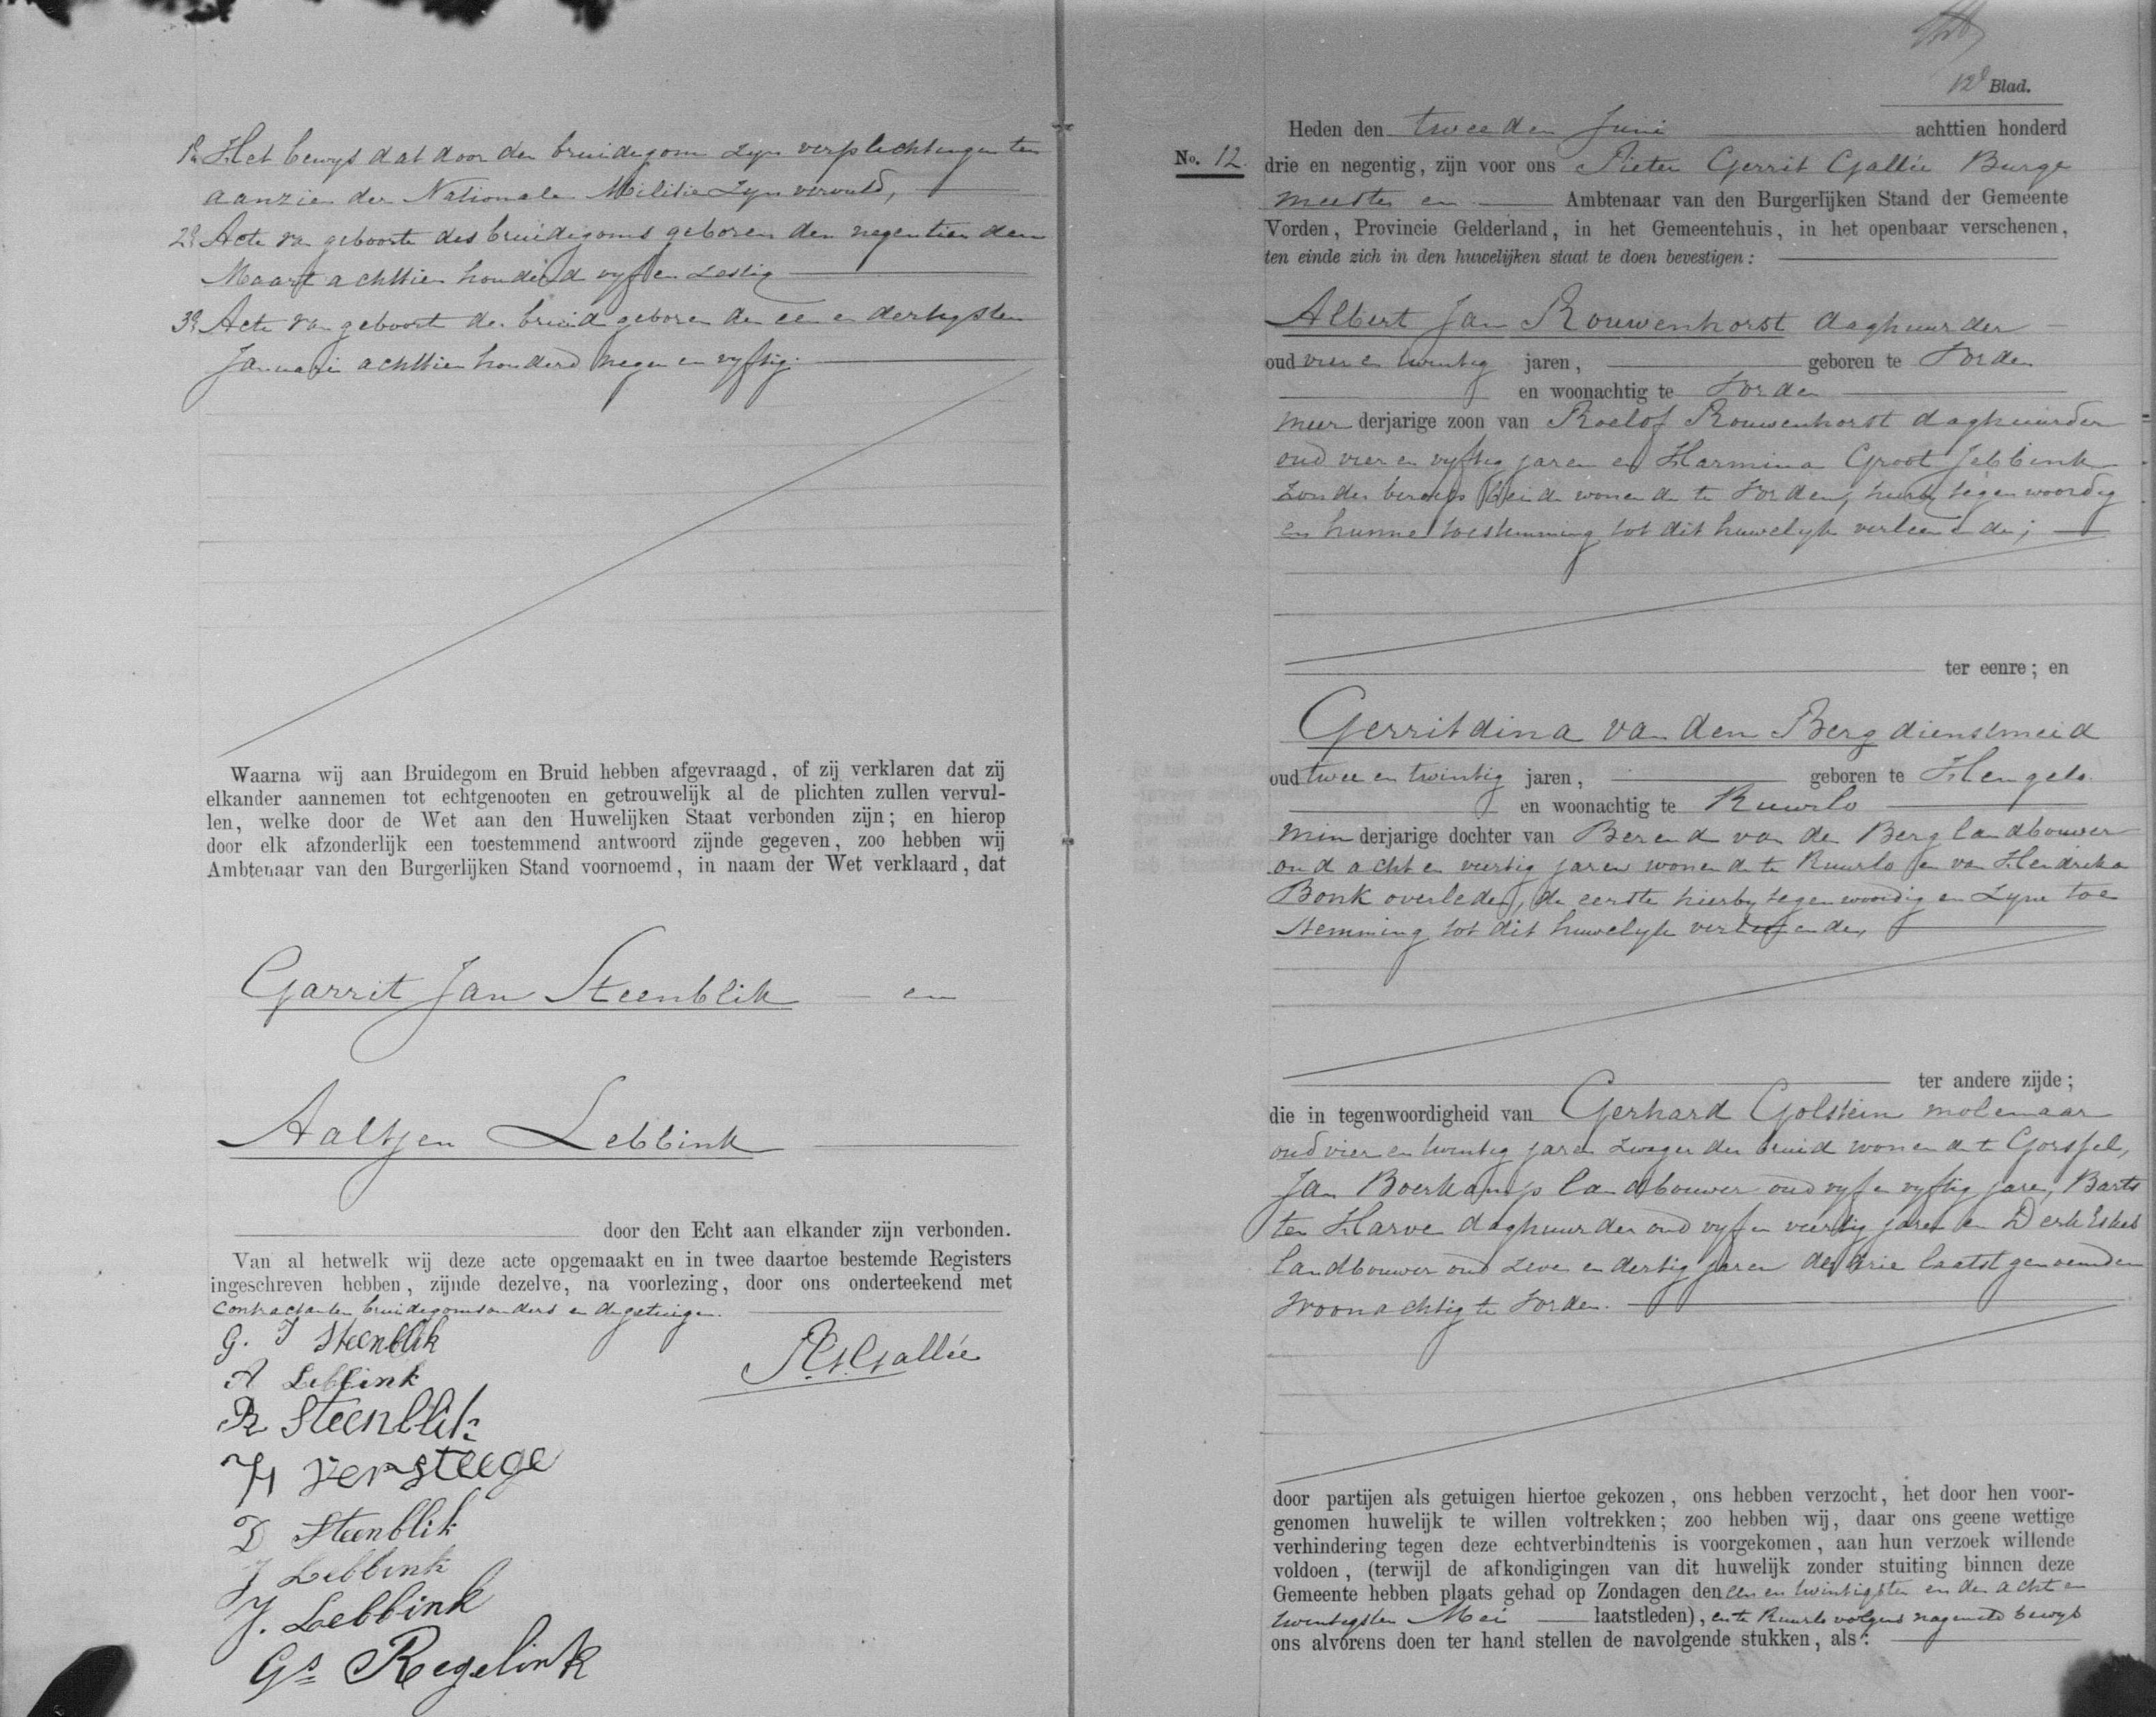 1o Het bewys dat door den bruidegom zyn verplichtingen ten
aanzien der Nationale Militie zyn vervuld,
2o Acte van geboorte des bruidegoms geboren den negentienden
Maart achttien honderd vyf en zestig
3o Acte van geboorte der bruid geboren den een en dertigsten
Januari achttien honderd negen en vyftig.
Waarna wij aan Bruidegom en Bruid hebben afgevraagd, of zij verklaren dat zij
elkander aannemen tot echtgenooten en getrouwelijk al de plichten zullen vervul-
len, welke door de Wet aan den Huwelijken Staat verbonden zijn; en hierop
door elk afzonderlijk een toestemmend antwoord zijnde gegeven, zoo hebben wij
Ambtenaar van den Burgerlijken Stand voornoemd, in naam der Wet verklaard, dat
Garrit Jan Steenblik en
Aaltjen Lebbink
door den Echt aan elkander zijn verbonden.
Van al hetwelk wij deze acte opgemaakt en in twee daartoe bestemde Registers
ingeschreven hebben, zijnde dezelve, na voorlezing, door ons onderteekend met
contractanten bruidegomsouders en de getuigen.
G. J Steenblik
A Lebbink
PGGallée
R Steenblik
H Versteege
D Steenblik
J Lebbink
J. Lebbink
Gs Regelink
12e Blad.
Heden den tweeden Juni achttien honderd
No. 12. drie en negentig, zijn voor ons Pieter Gerrit Gallée Burge
meester en Ambtenaar van den Burgerlijken Stand der Gemeente
Vorden, Provincie Gelderland, in het Gemeentehuis, in het openbaar verschenen,
ten einde zich in den huwelijken staat te doen bevestigen:
Albert Jan Rouwenhorst daghuurder
oud vier en twintig jaren, geboren te Vorden
en woonachtig te Vorden
meer derjarige zoon van Roelof Rouwenhorst daghuurder
oud vier en vyftig jaren en Harmina Groot Jebbink
zonder beroep beide wonende te Vorden, hierby tegenwoordig
en hunne toestemming tot dit huwelyk verleenende;
ter eenre; en
Gerritdina van den Berg dienstmeid
oud twee en twintig jaren, geboren te Hengelo
en woonachtig te Ruurlo
min derjarige dochter van Berend van den Berg landbouwer
oud acht en veertig jaren wonende te Ruurlo en van Hendrika
Bonk overleden, de eerste hierby tegenwoordig en zyne toe
stemming tot dit huwelyk verleenende,
ter andere zijde;
die in tegenwoordigheid van Gerhard Golstein molenaar
oud vier en twintig jaren zwager der bruid wonende te Gorssel,
Jan Boerkamp landbouwer oud vyf en vyftig jaren, Barts
ten Harve daghuurder oud vyf en veertig jaren en Derk Eskes
landbouwer oud zeven en dertig jaren de drie laatstgenoemden
woonachtig te Vorden.
door partijen als getuigen hiertoe gekozen, ons hebben verzocht, het door hen voor-
genomen huwelijk te willen voltrekken; zoo hebben wij, daar ons geene wettige
verhindering tegen deze echtverbindtenis is voorgekomen, aan hun verzoek willende
voldoen, (terwijl de afkondigingen van dit huwelijk zonder stuiting binnen deze
Gemeente hebben plaats gehad op Zondagen den een en twintigsten en den acht en
twintigsten Mei laatstleden), en te Ruurlo volgens nagemeld bewys
ons alvorens doen ter hand stellen de navolgende stukken, als: